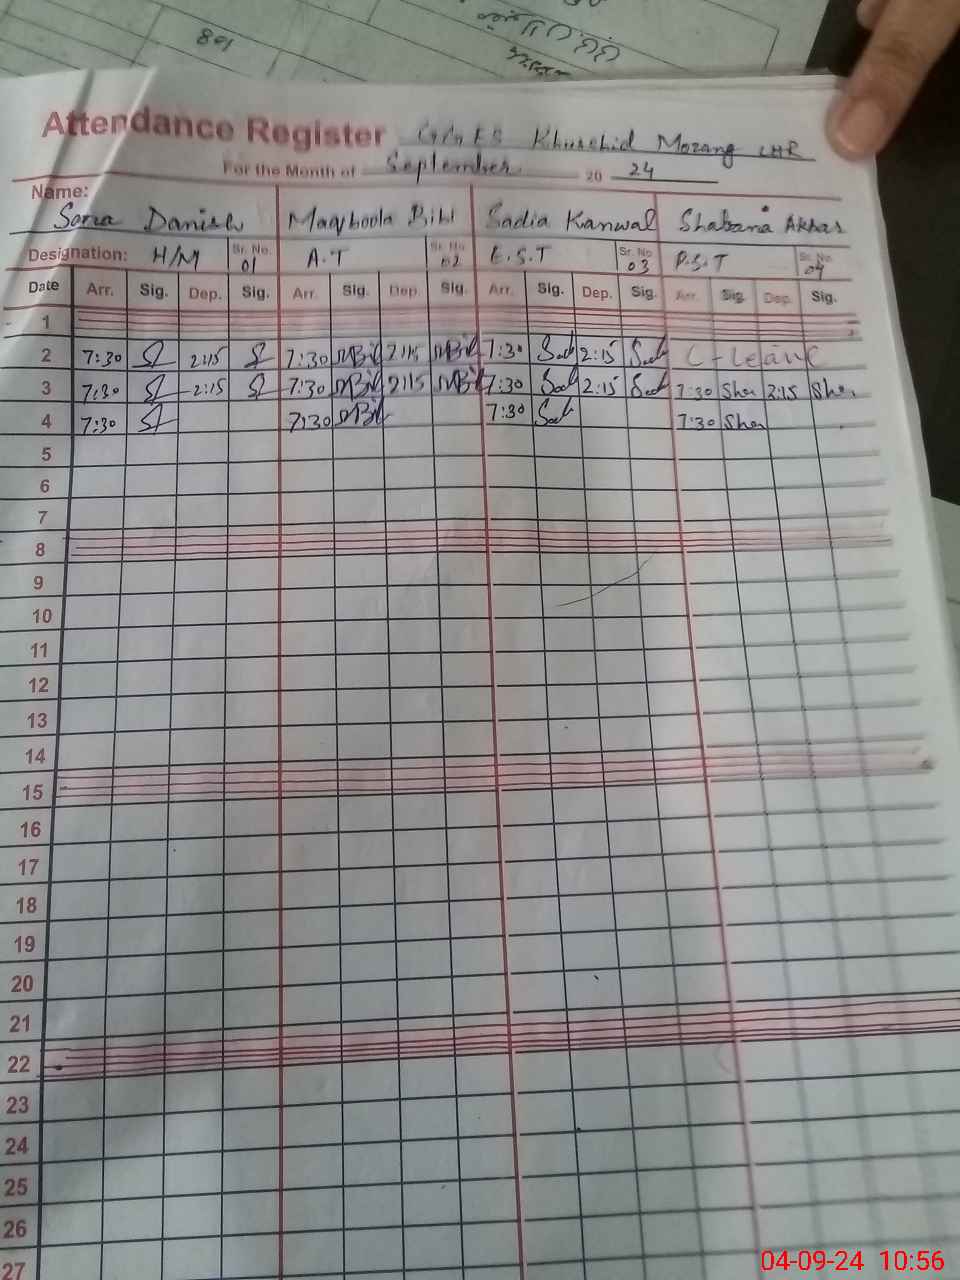 108
Attendance Register GGES Khurshid Mozang LHR
For the Month of September 20 24
Name:
Sonia Danish Maqboola Bibi Sadia Kanwal Shabana Akhtar
Designation: H/M Sr. No. 01 A.T Sr. No. 02 E.S.T Sr. No. 03 P.S.T Sr. No. 04
Date Arr. Sig. Dep. Sig. Arr. Sig. Dep. Sig. Arr. Sig. Dep. Sig. Arr. Sig. Dep. Sig.
1
2 7:30 2:15 7:30 MBibi 2:15 MBibi 7:30 Sad 2:15 Sad C-Leave
3 7:30 2:15 7:30 MBibi 2:15 MBibi 7:30 Sad 2:15 Sad 7:30 Sha 2:15 Sha
4 7:30 7:30 MBibi 7:30 Sad 7:30 Sha
5
6
7
8
9
10
11
12
13
14
15
16
17
18
19
20
21
22
23
24
25
26
27
04-09-24 10:56